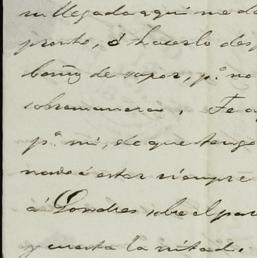 mi llegada aquí me da
pronto, ó hacerlo des
baño de vapor, p.ª no
sobremanera. Te a
p.ª mi, de que tengo
naveá estar siempre
á Londres sobre el par
y cuesta la mitad.